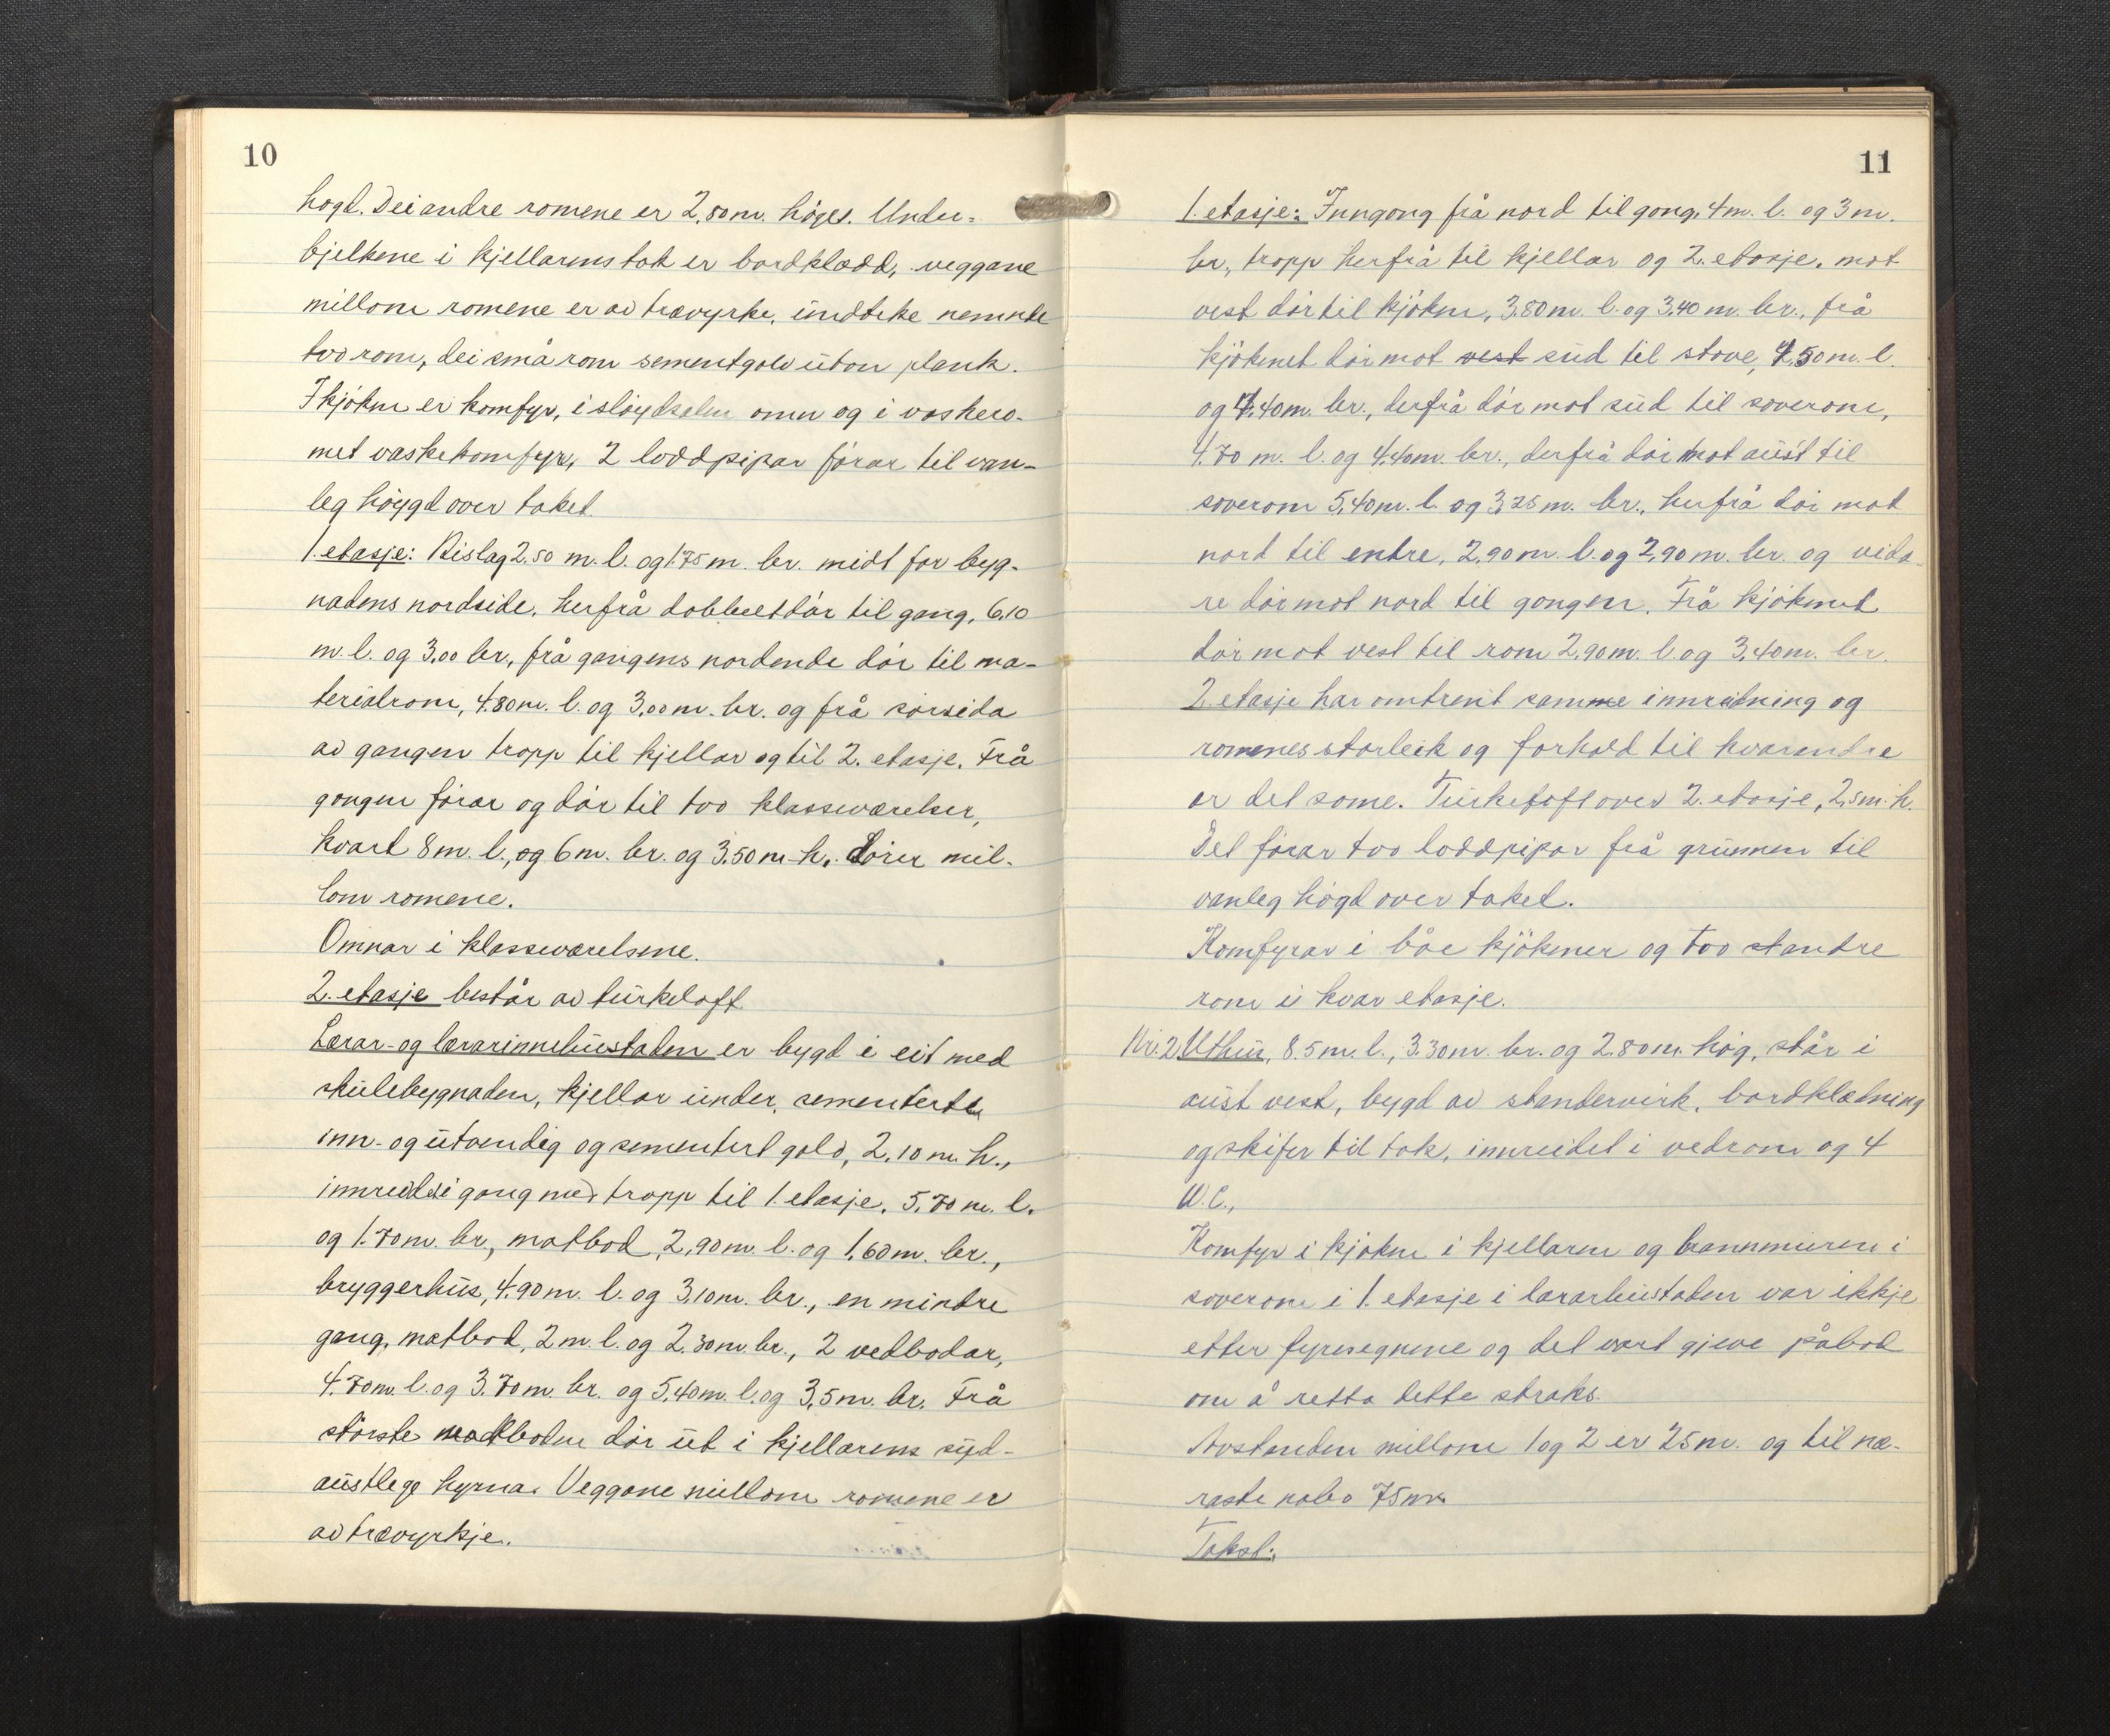 10
høgd. Dei andre romene er 2,80 m. høge. Under-
bjelkene i kjellarens tak er bordklædd, veggane
millom romene er av trævyrke, undteke nemnde
tvo rom, dei små rom sementgolv uton plank.
I kjøken er komfyr, i sløydsalen omn og i vaskero-
met vaskekomfyr, 2 loddpipar førar til van-
leg høygd over taket.
1. etasje: Bislag 2,50 m. l. og 1.75 m. br. midt for byg-
nadens nordside, herfrå dobbeltdør til gang, 6,10
m. l. og 3,00 br., frå gangens nordende dør til ma-
terialrom, 4.80 m. l. og 3,00 m. br. og frå sørsida
av gangen tropp til kjellar og til 2. etasje. Frå
gongen førar og dør til tvo klasseværelser,
kvart 8 m. l., og 6 m. br. og 3,50 m h. Dører mil-
lom romene.
Omnar i klasseværelsene.
2. etasje består av turkeloft.
Lærar- og lærarinnebustaden er bygd i eit med
skulebygnaden, kjellar under, sementerte
inn- og utvendig og sementert golv, 2,10 m. h.,
innreidd i gang med tropp til 1. etasje, 5,70 m. l.
og 1.70 m. br., matbod, 2,90 m. l. og 1,60 m. br.,
bryggerhus, 4.90 m. l. og 3,10 m. br., en mindre
gang, matbod, 2 m. l. og 2,30 m. br., 2 vedbodar,
4.70 m. l. og 3.70 m. br. og 5,40 m. l. og 3,5 m. br. Frå
største boden dør ut i kjellarens syd-
austlege hyrna. Veggane millom romene er
av trævyrkje.
11
1. etasje: Inngong frå nord til gong, 4 m. l. og 3 m.
br., tropp herfrå til kjellar og 2. etasje, mot
vest dør til kjøken, 3,80 m. l. og 3,40 m. br., frå
kjøkenet dør mot vest sud til stove, 4,50 m. l.
og 4,40 m. br., derfrå dør mot sud til soverom,
4.70 m. l. og 4,40 m. br., derfrå dør mot aust til
soverom 5,40 m. l. og 3,25 m. br., herfrå dør mot
nord til entre, 2,90 m. l. og 2,90 m. br. og vida-
re dør mot nord til gongen. Frå kjøkenet
dør mot vest til rom 2,90 m. l. og 3,40 m. br.
2. etasje har omtrent samme innreidning og
romenes storleik og forhold til kvarandre
er det same. Turkeloft over 2. etasje, 2,5 m. h.
Det førar tvo loddpipar frå grunnen til
vanleg høgd over taket.
Komfyrar i båe kjøkener og tvo andre
rom i kvar etasje.
Nr. 2 Uthus, 8.5 m. l., 3.30 m. br. og 2.80 m. høg, står i
aust vest, bygd av standervirk, bordklædning
og skifer til tak, innreidet i vedrom og 4
W.C.,
Komfyr i kjøken i kjellaren og brannmuren i
soverom i 1. etasje i lærarbustaden var ikkje
etter fyresegnene og det vart gjeve påbod
om å retta dette straks.
Avstanden millom 1 og 2 er 25 m. og til næ-
raste nabo 75 m.
Takst: